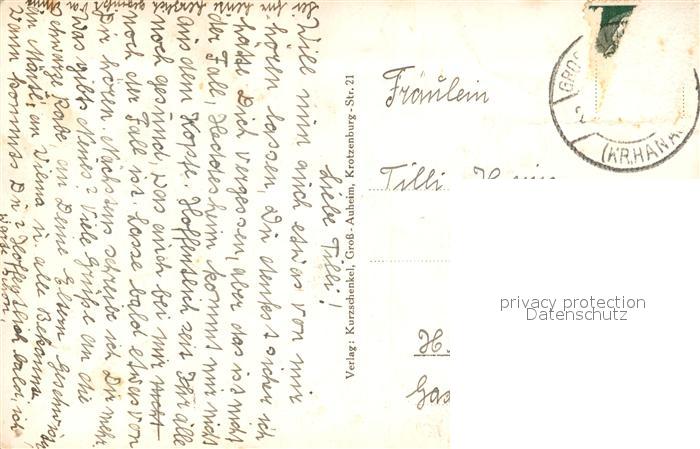 Liebe Tilli!
Will nun auch etwas von mir
hören lassen, Du denkst sicher ich
hätte Dich vergessen, aber das ist nicht
der Fall, Heddesheim kommt mir nicht
aus dem Kopfe. Hoffentlich seit Ihr alle
noch gesund, was auch bei mir
noch der Fall ist. Lasse bald etwas von
Dir hören. Nächstens schreibe ich Dir mehr
Was gibts Neues? Viele Grüße an die
schwarze Rabe, an Deine Eltern, Geschwister
an an u. alle Bekannte.
Wann kommst Du? Hoffentlich bald, ich
warte schon.
Sei für heute herzlich gegrüßt von
Verlag: Kurzschenkel, Groß-Auheim, Krotzenburg-Str. 21
Fräulein
Tilli
H.
Gas
GROS
(KR.HANA
privacy protection
Datenschutz